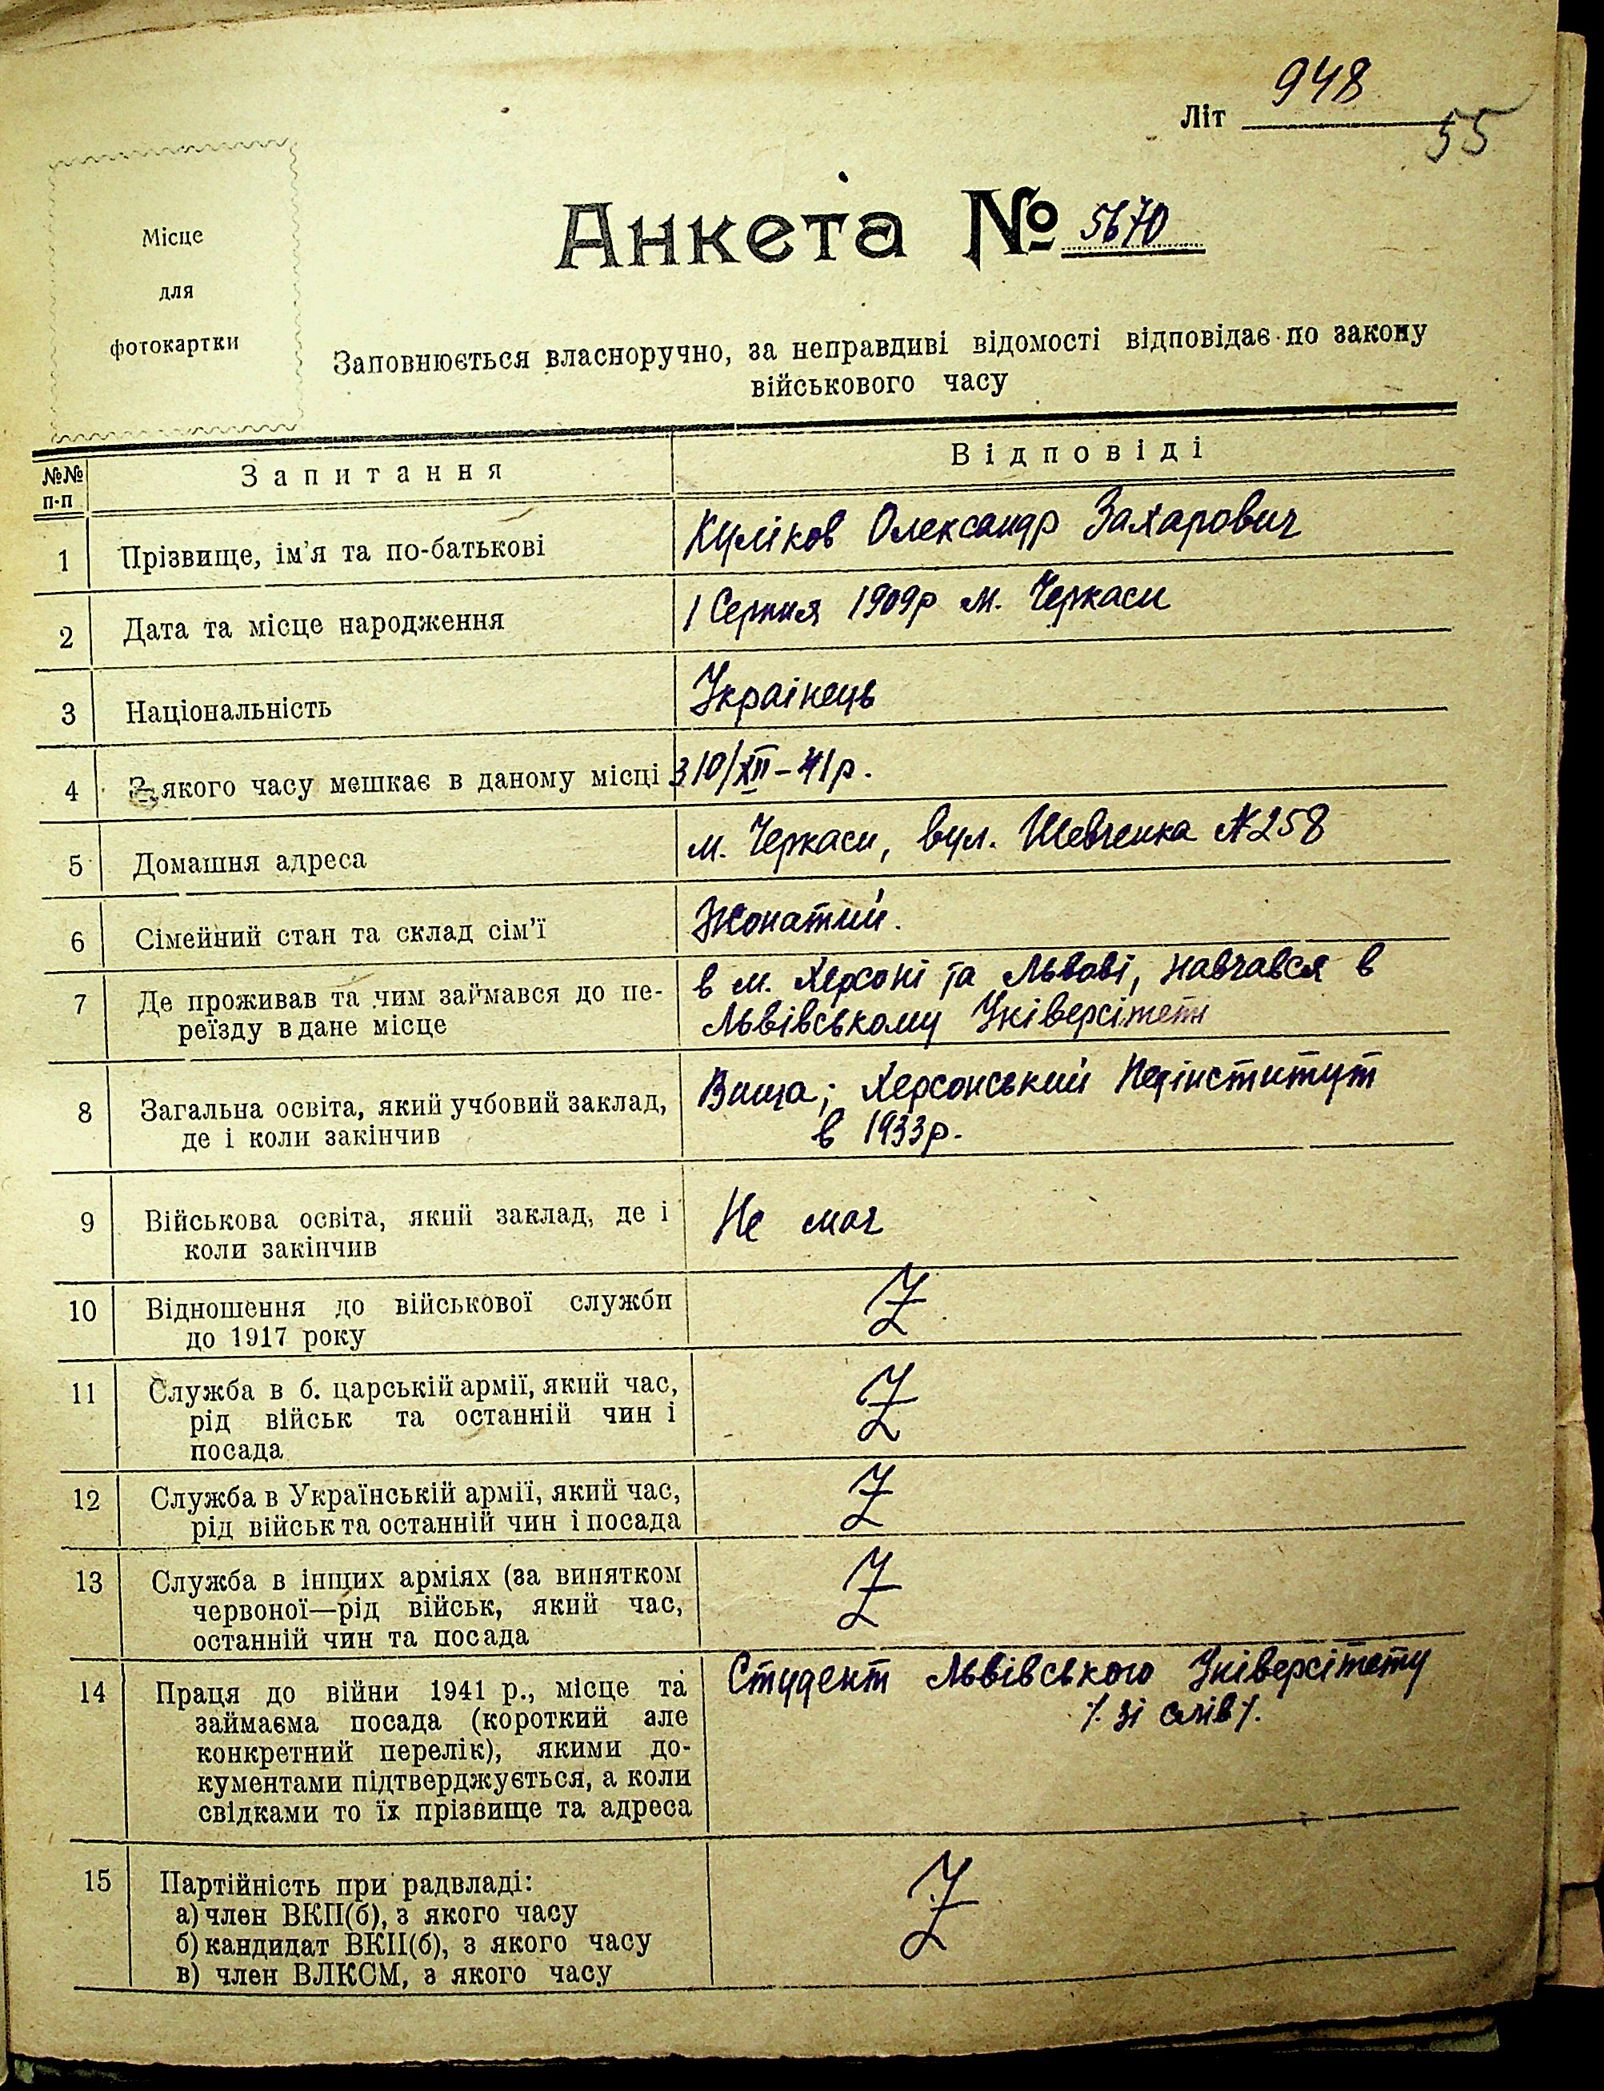 948
Літ
55
Місце
для
фотокартки
Анкета № 5670
Заповнюється власноручно, за неправдиві відомості відповідає по закону
військового часу
№№ п-п
Запитання
Відповіді
1
Прізвище, ім'я та по-батькові
Куліков Олександр Захарович
2
Дата та місце народження
1 Серпня 1909р м. Черкаси
3
Національність
Украінець
4
З якого часу мешкає в даному місці
з 10/XII-41р.
5
Домашня адреса
м. Черкаси, вул. Шевченка №258
6
Сімейний стан та склад сім'ї
Жонатий.
7
Де проживав та чим займався до пе-
реїзду в дане місце
в м. Херсоні та Львові, навчався в
Львівському Універсітеті
8
Загальна освіта, який учбовий заклад,
де і коли закінчив
Вища; Херсонський Педінститут
в 1933р.
9
Військова освіта, який заклад, де і
коли закінчив
Не мог
10
Відношення до військової служби
до 1917 року
11
Служба в б. царській армії, який час,
рід військ та останній чин і
посада
12
Служба в Українській армії, який час,
рід військ та останній чин і посада
13
Служба в інщих арміях (за винятком
червоної—рід військ, який час,
останній чин та посада
14
Праця до війни 1941 р., місце та
займаєма посада (короткий але
конкретний перелік), якими до-
кументами підтверджується, а коли
свідками то їх прізвище та адреса
Студент Львівського Універсітету
/. зі слів/.
15
Партійність при радвладі:
а) член ВКП(б), з якого часу
б) кандидат ВКП(б), з якого часу
в) член ВЛКСМ, з якого часу